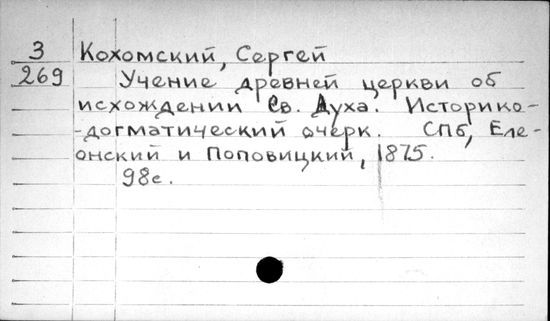 З Кохомский, Сергей
269 Учение древней церкви об
исхождении Св. Духа. Историко-
-догматический очерк. СПб, Еле-
онский и Поповицкий, 1875.
98с.